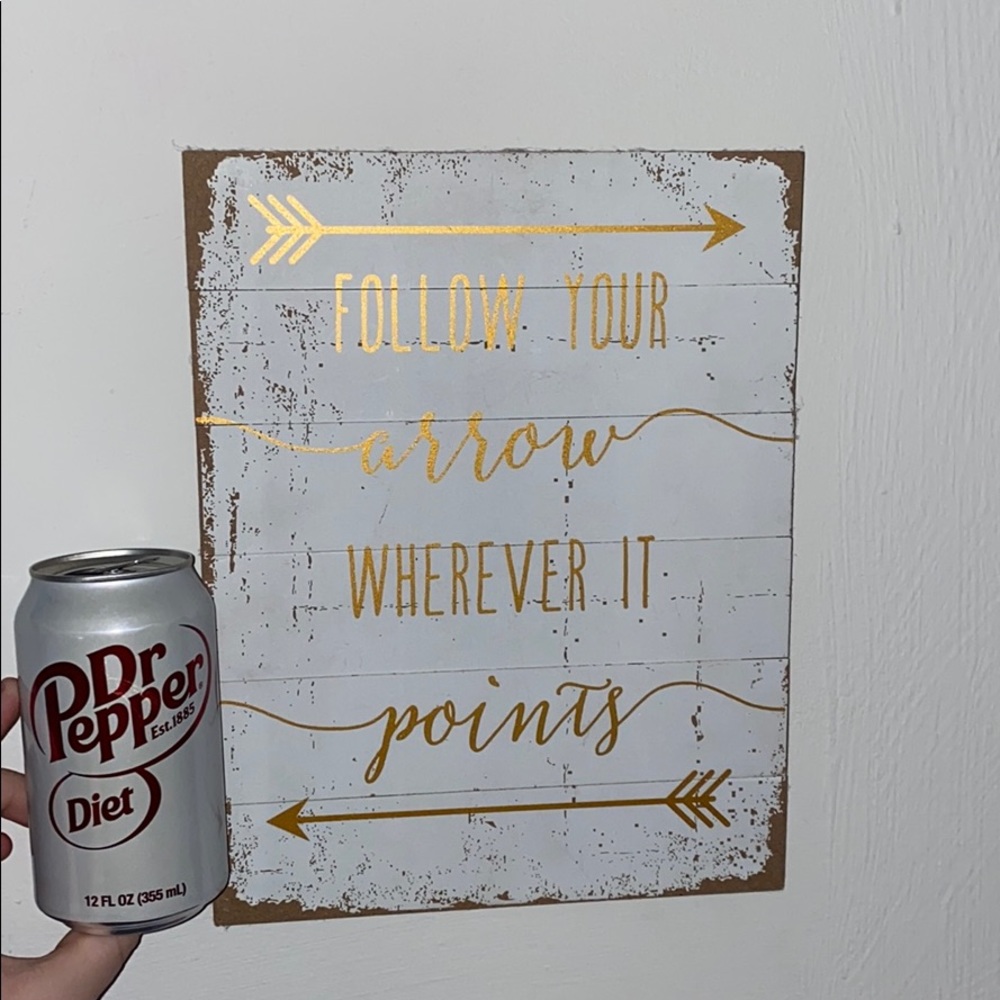 FOLLOW YOUR
arrow
WHEREVER IT
points
Dr
Pepper
Est.1885
Diet
12 FL OZ (355 mL)